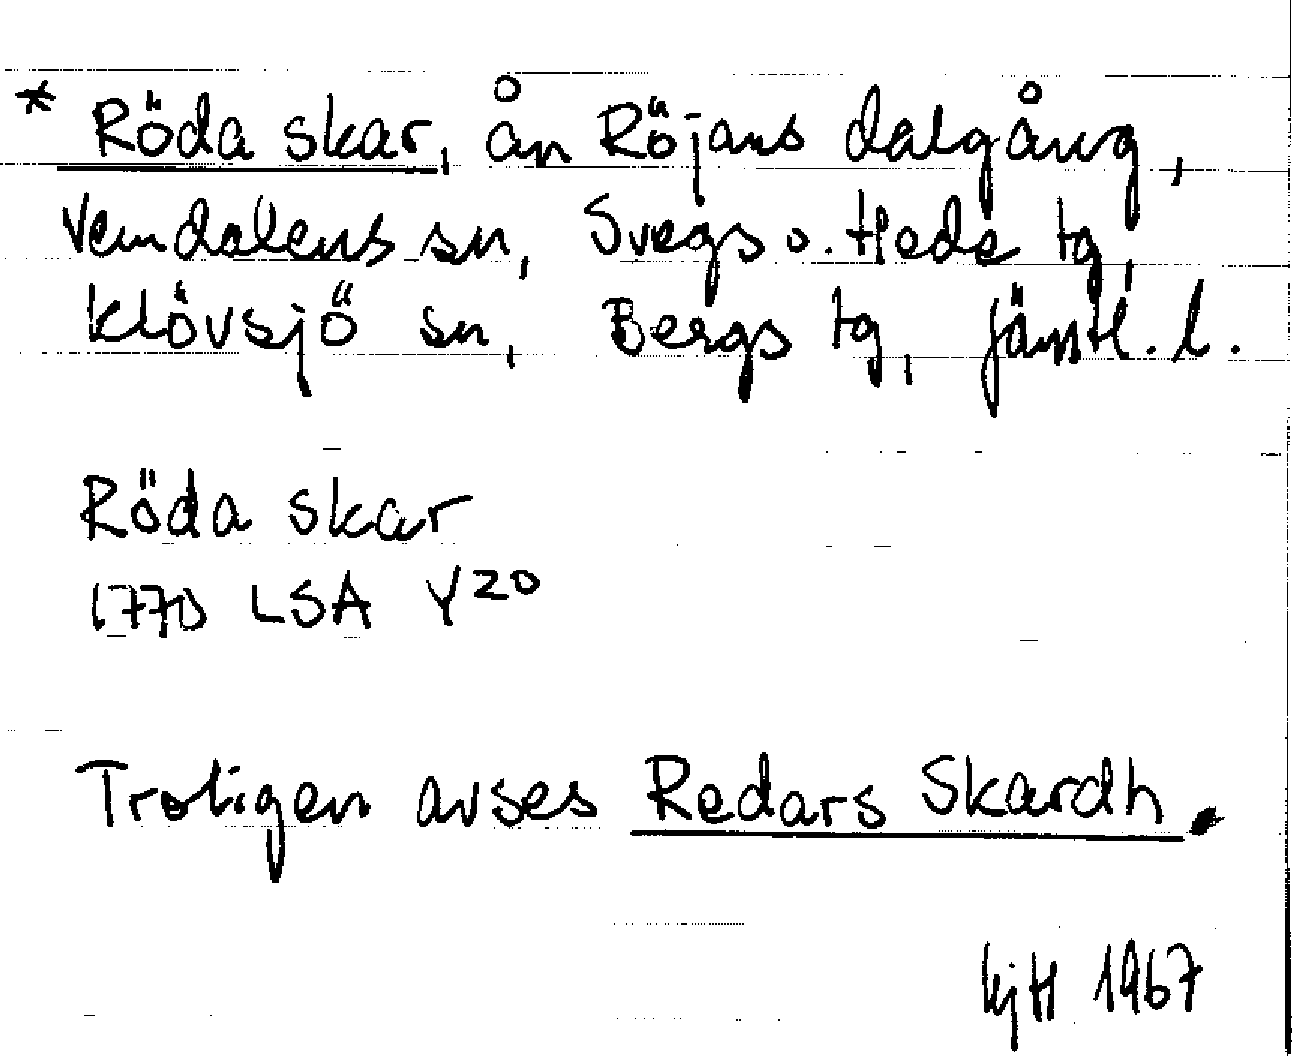 * Röda skar, ån Röjans dalgång,
Vemdalens sn, Svegs o. Hede tg,
Klövsjö sn, Bergs tg, Jämtl. l.
Röda skar
1770 LSA Y20
Troligen avses Redars Skardh.
KjH 1967